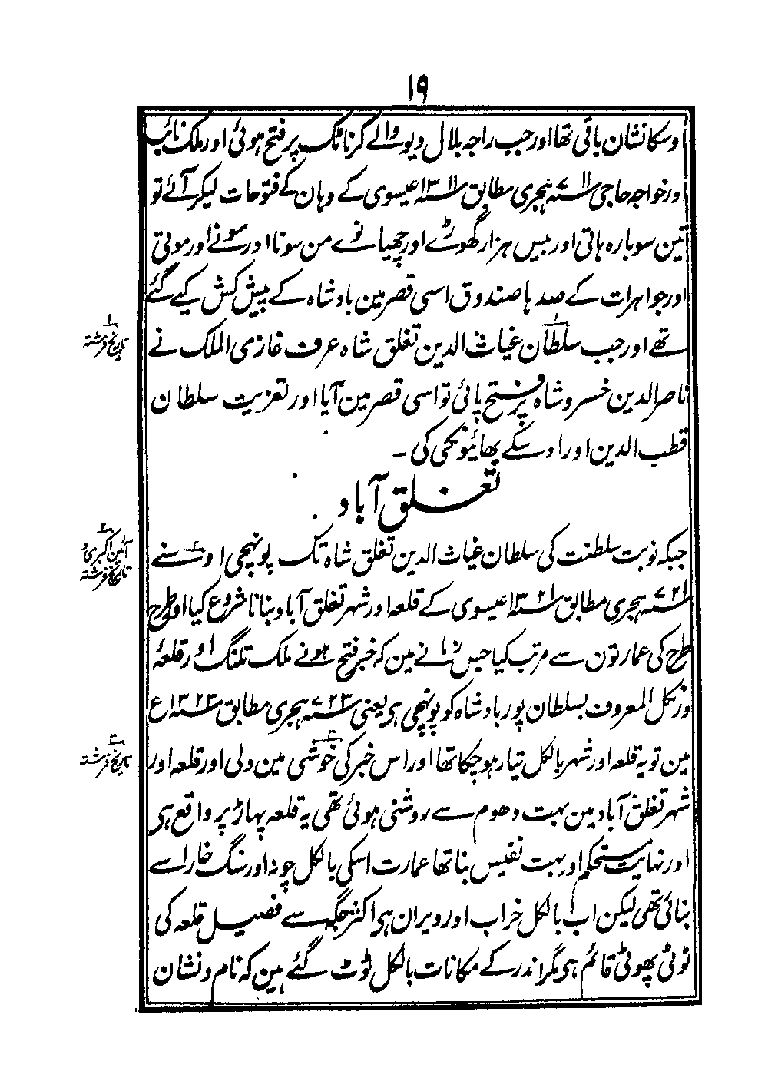 ۱۹
اوسکا نشان باقی تھا اور جب راجہ بلال دیو والے کرناٹک پر فتح ہوئی اور ملک نائب
اور خواجہ حاجی ۷۱۱ سنہ ہجری مطابق ۱۳۱۱ سنہ عیسوی کے وہان کے فتوحات لیکر آئے تو
تین سو بارہ ہاتی اور بیس ہزار گھوڑے اور چھیانوے من سونا اور مونے اور موتی
اور جواہرات کے صدہا صندوق اسی قصر مین بادشاہ کے پیش کش کیے گئے
تھے اور جب سلطان غیاث الدین تغلق شاہ عرف غازی الملک نے
تاریخ فرشتہ
ناصر الدین خسرو شاہ پر فتح پائی تو اسی قصر مین آیا اور تعزیت سلطان
قطب الدین اور اوسکے بھائیونکی کی ۔
تغلق آباد
جبکہ نوبت سلطنت کی سلطان غیاث الدین تغلق شاہ تک پونہچی اوسنے
آئین اکبری و
تاریخ فرشتہ
۷۲۱ سنہ ہجری مطابق ۱۳۲۱ سنہ عیسوی کے قلعہ اور شہر تغلق آباد بنانا شروع کیا اور طرح
طرح کی عمارتون سے مرتب کیا جس زمانے مین کہ خبر فتح ہونے ملک تلنگ اور قلعہ
ورنکل المعروف بسلطان پور بادشاہ کو پونہچی ہی یعنی ۷۲۳ سنہ ہجری مطابق ۱۳۲۳ ع
مین تو یہ قلعہ اور شہر بالکل تیار ہو چکا تھا اور اس خبر کی خوشی مین دلی اور قلعہ اور
تاریخ فرشتہ
شہر تغلق آباد مین بہت دھوم سے روشنی ہوئی تھی یہ قلعہ پہاڑ پر واقع ہی
اور نہایت مستحکم اور بہت نفیس بنا تھا عمارت اسکی بالکل چونہ اور سنگ خارا سے
بنائی تھی لیکن اب بالکل خراب اور ویران ہی اکثر جگہہ سے فصیل قلعہ کی
ٹوٹی پھوٹی قائم ہی مگر اندر کے مکانات بالکل ٹوٹ گئے ہین کہ نام و نشان